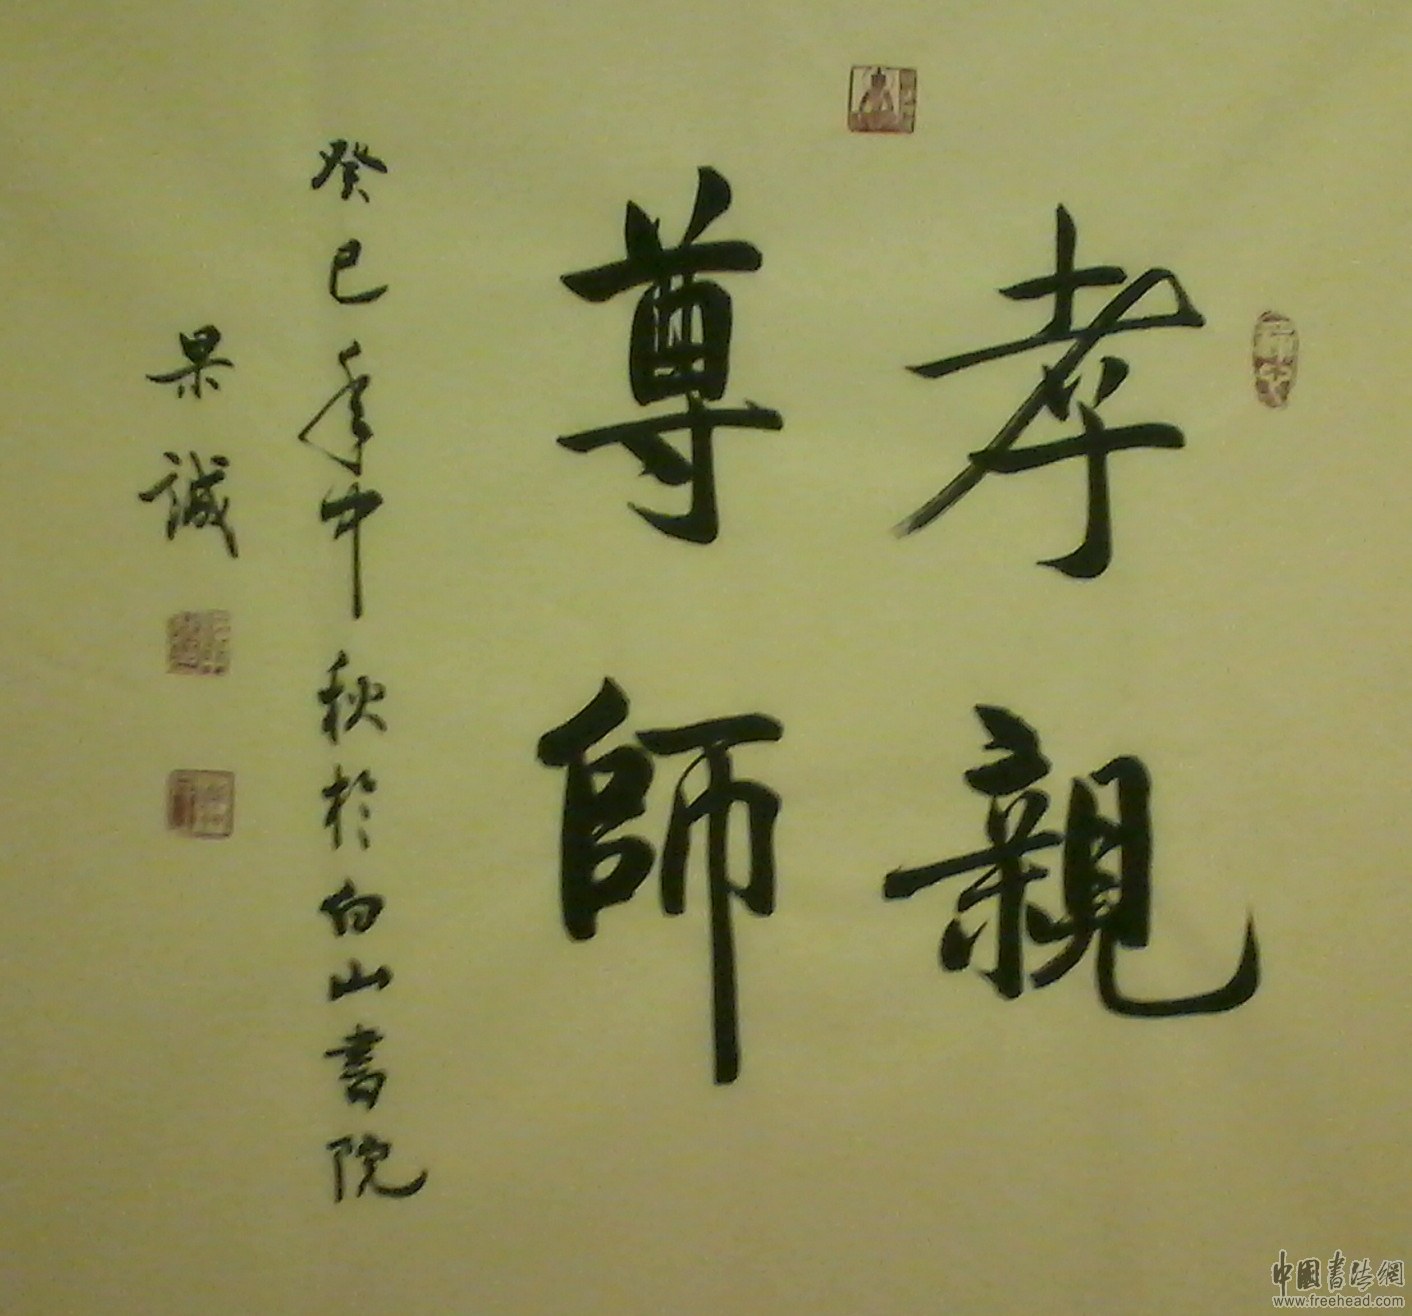 孝親
尊師
癸巳年中秋於白山書院
果誠
中國書法網
www.freehead.com